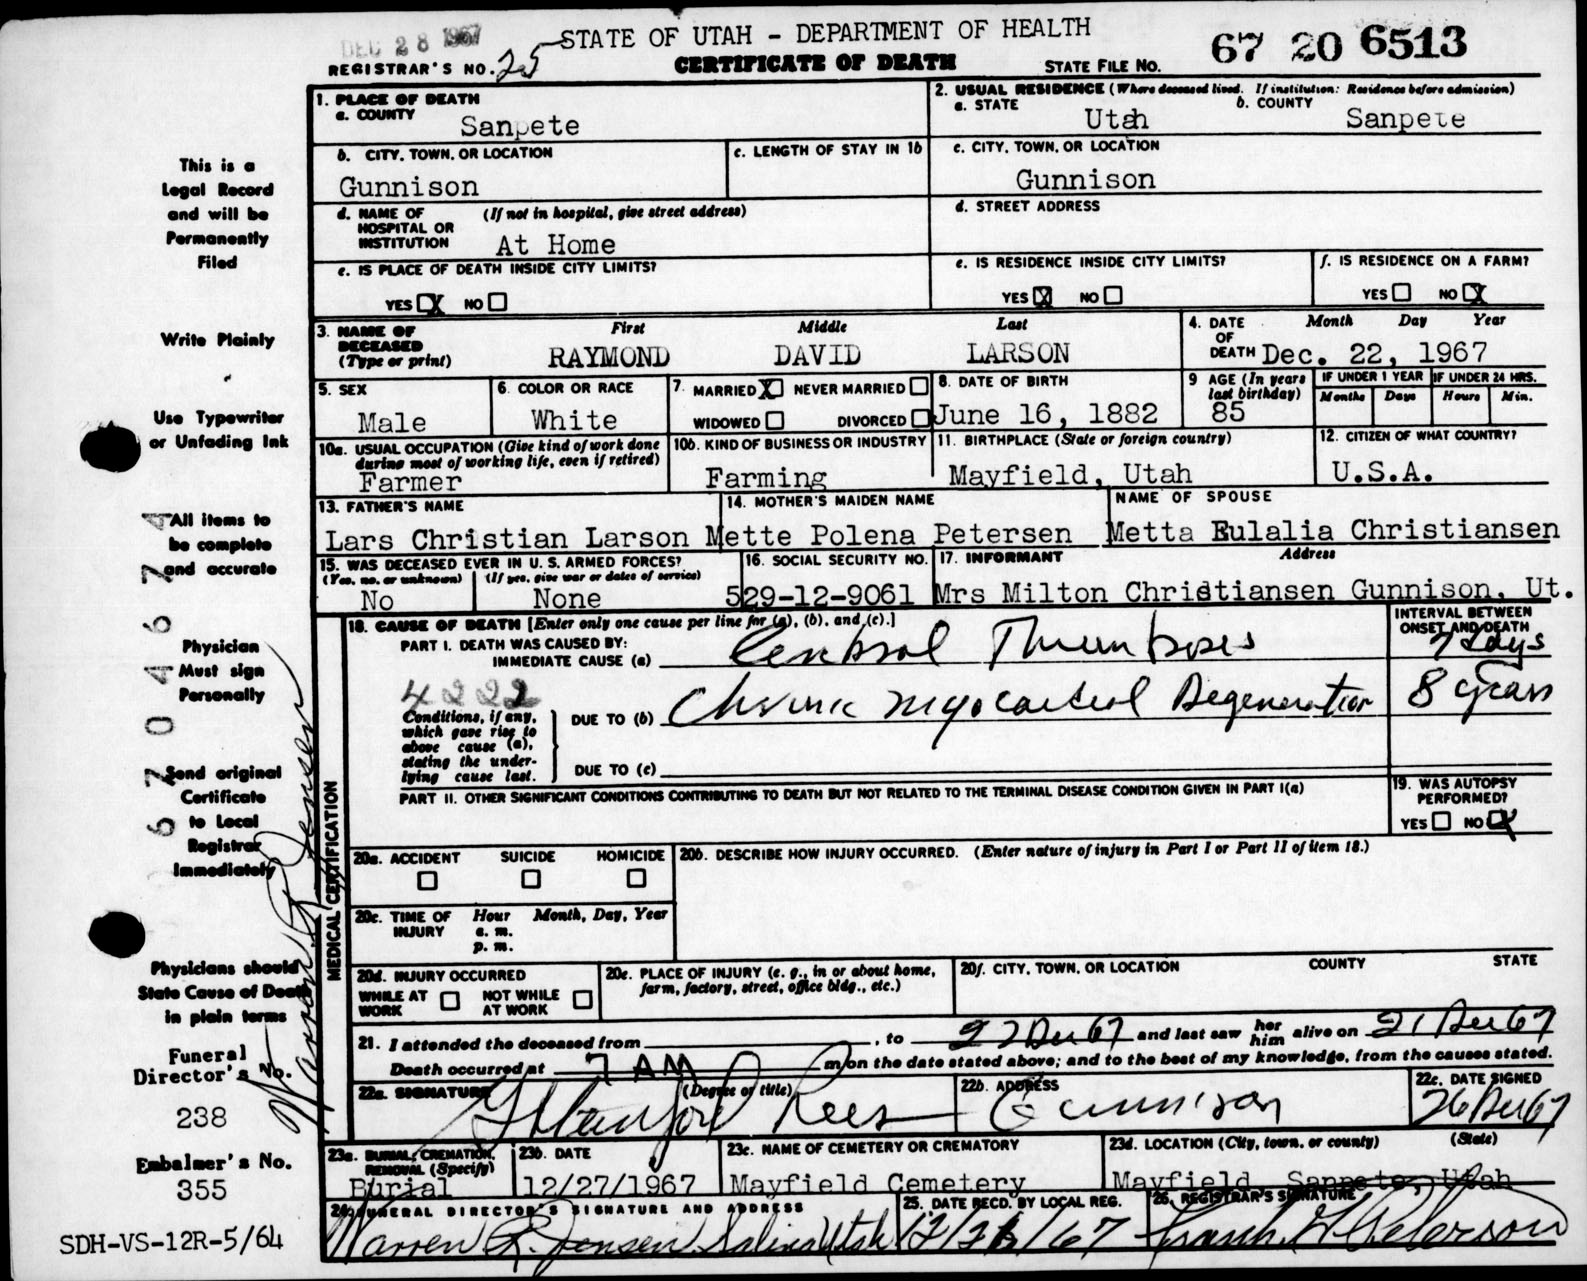 DEC 28 1967
STATE OF UTAH - DEPARTMENT OF HEALTH
67 20 6513
REGISTRAR'S NO. 25
CERTIFICATE OF DEATH
STATE FILE NO.
1. PLACE OF DEATH
a. COUNTY
Sanpete
2. USUAL RESIDENCE (Where deceased lived. If institution: Residence before admission)
a. STATE
Utah
b. COUNTY
Sanpete
b. CITY, TOWN, OR LOCATION
Gunnison
c. LENGTH OF STAY IN 1b
c. CITY, TOWN, OR LOCATION
Gunnison
d. NAME OF HOSPITAL OR INSTITUTION
(If not in hospital, give street address)
At Home
d. STREET ADDRESS
e. IS PLACE OF DEATH INSIDE CITY LIMITS?
YES X NO
e. IS RESIDENCE INSIDE CITY LIMITS?
YES X NO
f. IS RESIDENCE ON A FARM?
YES NO X
3. NAME OF DECEASED (Type or print)
First Middle Last
RAYMOND DAVID LARSON
4. DATE OF DEATH
Month Day Year
Dec. 22, 1967
5. SEX
Male
6. COLOR OR RACE
White
7. MARRIED X NEVER MARRIED
WIDOWED DIVORCED
8. DATE OF BIRTH
June 16, 1882
9 AGE (In years last birthday)
85
IF UNDER 1 YEAR
Months Days
IF UNDER 24 HRS.
Hours Min.
10a. USUAL OCCUPATION (Give kind of work done during most of working life, even if retired)
Farmer
10b. KIND OF BUSINESS OR INDUSTRY
Farming
11. BIRTHPLACE (State or foreign country)
Mayfield, Utah
12. CITIZEN OF WHAT COUNTRY?
U.S.A.
13. FATHER'S NAME
Lars Christian Larson
14. MOTHER'S MAIDEN NAME
Mette Polena Petersen
NAME OF SPOUSE
Metta Eulalia Christiansen
15. WAS DECEASED EVER IN U. S. ARMED FORCES?
(Yes, no, or unknown) (If yes, give war or dates of service)
No None
16. SOCIAL SECURITY NO.
529-12-9061
17. INFORMANT Address
Mrs Milton Christiansen Gunnison, Ut.
18. CAUSE OF DEATH [Enter only one cause per line for (a), (b), and (c).]
INTERVAL BETWEEN ONSET AND DEATH
PART I. DEATH WAS CAUSED BY:
IMMEDIATE CAUSE (a) Cerebral Thrombosis
7 days
4222
Conditions, if any, which gave rise to above cause (a), stating the underlying cause last.
DUE TO (b) Chronic myocardial Degeneration
8 years
DUE TO (c)
PART II. OTHER SIGNIFICANT CONDITIONS CONTRIBUTING TO DEATH BUT NOT RELATED TO THE TERMINAL DISEASE CONDITION GIVEN IN PART I(a)
19. WAS AUTOPSY PERFORMED?
YES NO X
MEDICAL CERTIFICATION
20a. ACCIDENT SUICIDE HOMICIDE
20b. DESCRIBE HOW INJURY OCCURRED. (Enter nature of injury in Part I or Part II of item 18.)
20c. TIME OF INJURY
Hour Month, Day, Year
a. m.
p. m.
20d. INJURY OCCURRED
WHILE AT WORK NOT WHILE AT WORK
20e. PLACE OF INJURY (e. g., in or about home, farm, factory, street, office bldg., etc.)
20f. CITY, TOWN, OR LOCATION COUNTY STATE
21. I attended the deceased from , to 22 Dec 67 and last saw her him alive on 21 Dec 67
Death occurred at 7 AM m on the date stated above; and to the best of my knowledge, from the causes stated.
22a. SIGNATURE (Degree or title)
G Stanford Rees
22b. ADDRESS
Gunnison
22c. DATE SIGNED
26 Dec 67
23a. BURIAL, CREMATION, REMOVAL (Specify)
Burial
23b. DATE
12/27/1967
23c. NAME OF CEMETERY OR CREMATORY
Mayfield Cemetery
23d. LOCATION (City, town, or county) (State)
Mayfield, Sanpete, Utah
24. FUNERAL DIRECTOR'S SIGNATURE AND ADDRESS
Warren R. Jensen Salina Utah
25. DATE RECD. BY LOCAL REG.
12/26/67
26. REGISTRAR'S SIGNATURE
This is a
Legal Record
and will be
Permanently
Filed
Write Plainly
Use Typewriter
or Unfading Ink
All items to
be complete
and accurate
Physician
Must sign
Personally
Send original
Certificate
to Local
Registrar
Immediately
Physicians should
State Cause of Death
in plain terms
Funeral
Director's No.
238
Embalmer's No.
355
SDH-VS-12R-5/64
Warren R Jensen